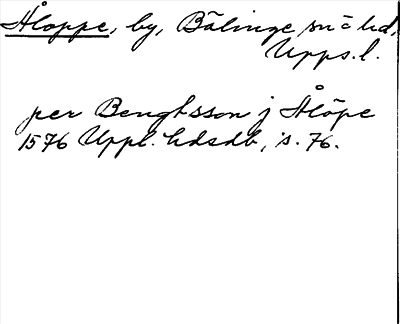 Åloppe, by, Bälinge sn o hd,
Upps. l.
per Bengtsson j Ålöpe
1576 Uppl. hdsdb, s. 76.